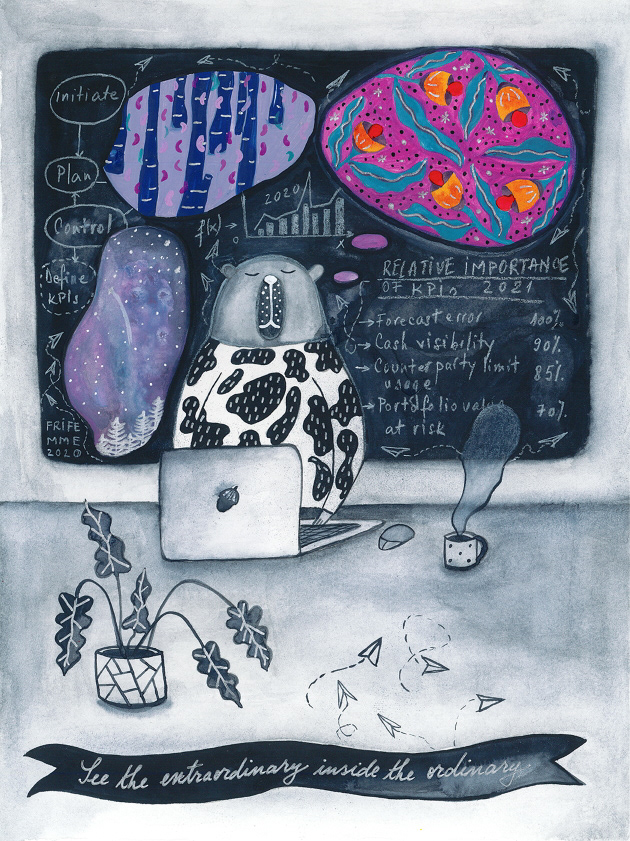 Initiate
Plan
Control
Define
KPIs
2020
f(x)
0
x
RELATIVE IMPORTANCE
OF KPIs 2021
Forecast error 100%
Cash visibility 90%
Counterparty limit 85%
usage
Portsfolio value 70%
at risk
FRIFE
MME
2020
See the extraordinary inside the ordinary.